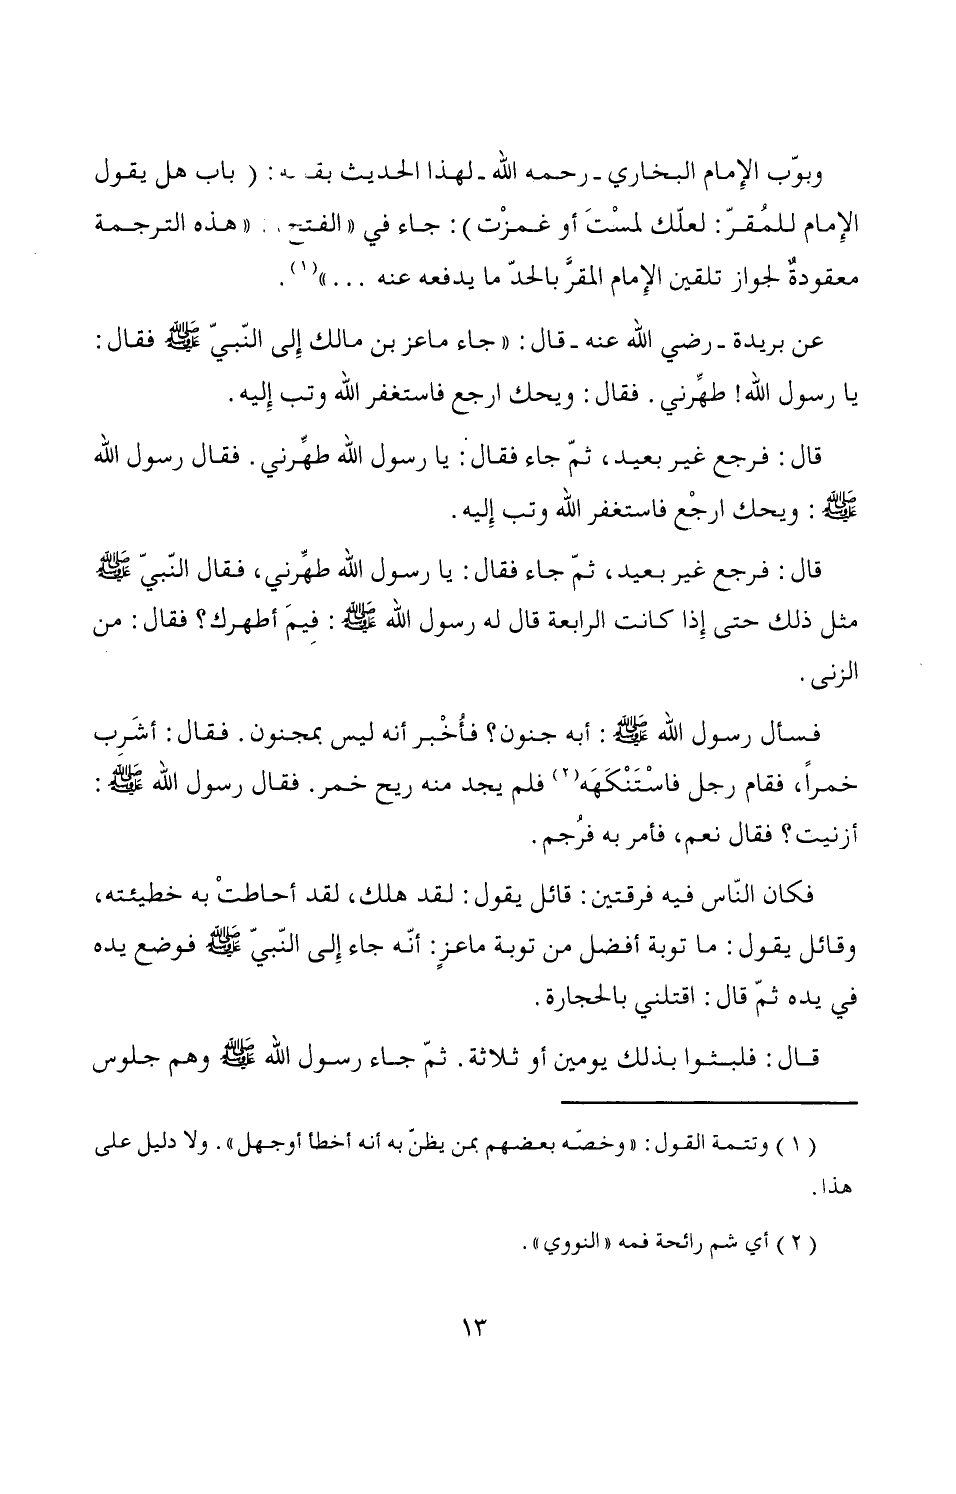 وبوّب الإمام البخاري ـ رحمه الله ـ لهذا الحديث : ( باب هل يقول
الإمام للمُقرّ : لعلّك لمسْتَ أو غمزْت ) : جاء في « الفتح « هذه الترجمة
معقودةٌ لجواز تلقين الإمام المقرَّ بالحدّ ما يدفعه عنه ... »(١) .
عن بريدة ـ رضي الله عنه ـ قال : « جاء ماعز بن مالك إلى النّبيّ ﷺ فقال :
يا رسول الله ! طهِّرني . فقال : ويحك ارجع فاستغفر الله وتب إليه .
قال : فرجع غير بعيد ، ثمّ جاء فقال : يا رسول الله طهِّرني . فقال رسول الله
ﷺ : ويحك ارجْع فاستغفر الله وتب إليه .
قال : فرجع غير بعيد ، ثمّ جاء فقال : يا رسول الله طهِّرني ، فقال النّبيّ ﷺ
مثل ذلك حتى إذا كانت الرابعة قال له رسول الله ﷺ : فِيمَ أطهرك ؟ فقال : من
الزنى .
فسأل رسول الله ﷺ : أبه جنون ؟ فأُخْبر أنه ليس بمجنون . فقال : أشَرِب
خمراً ، فقام رجل فاسْتَنْكَهَه(٢) فلم يجد منه ريح خمر . فقال رسول الله ﷺ :
أزنيت ؟ فقال نعم ، فأمر به فرُجم .
فكان النّاس فيه فرقتين : قائل يقول : لقد هلك ، لقد أحاطتْ به خطيئته ،
وقائل يقول : ما توبة أفضل من توبة ماعزٍ : أنّه جاء إلى النّبيّ ﷺ فوضع يده
في يده ثمّ قال : اقتلني بالحجارة .
قال : فلبثوا بذلك يومين أو ثلاثة . ثمّ جاء رسول الله ﷺ وهم جلوس
( ١ ) وتتمة القول : « وخصّه بعضهم بمن يظنّ به أنه أخطأ أوجهل » . ولا دليل على
هذا .
( ٢ ) أي شم رائحة فمه « النووي » .
١٣